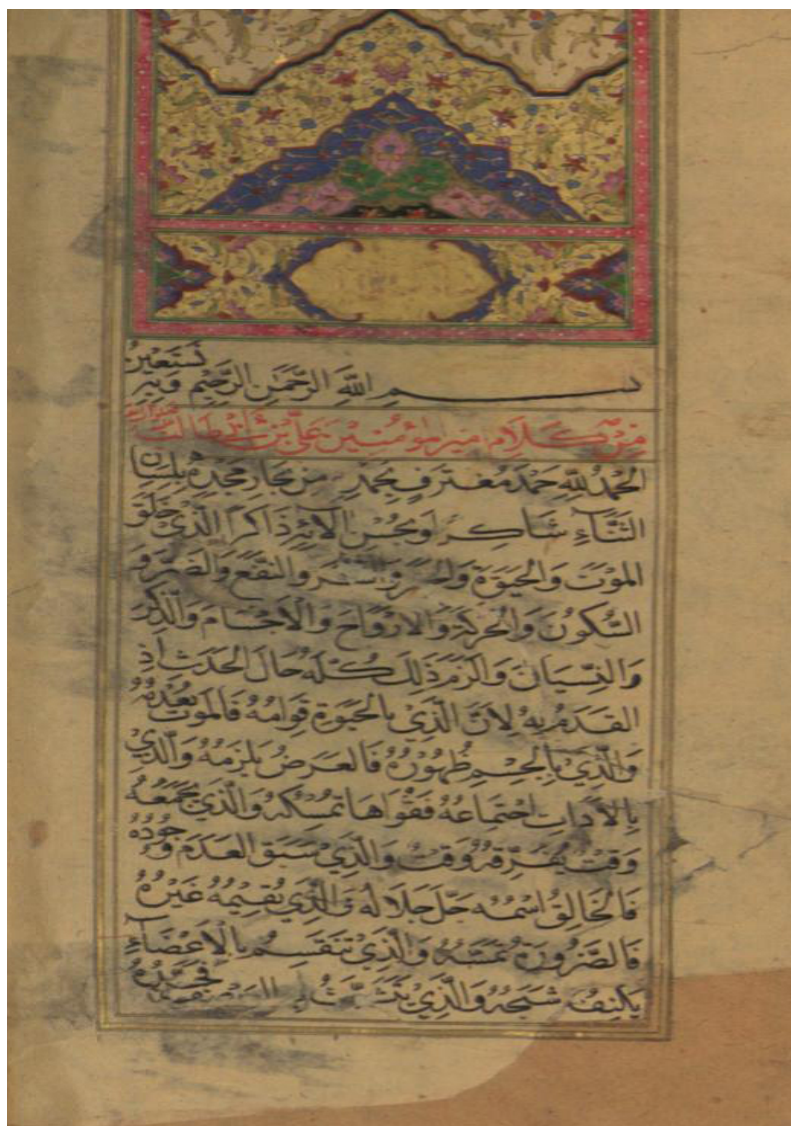 بسم الله الرحمن الرحيم وبه نستعين
من كلام امير المؤمنين علي بن ابي طالب
الحمد لله حمد معترف بحمده من بحار مجده بلسان
الثناء شاكرا وبحسن آلائه ذاكرا الذي خلق
الموت والحيوة والخير والشر والنفع والضر و
السكون والحركة والارواح والاجسام والذكر
والنسيان والزم ذلك كله حال الحدث اذ
القدم له لان الذي بالحيوة قوامه فالموت يعدمه
والذي بالجسم ظهوره فالعرض يلزمه والذي
بالادات اجتماعه فقواها تمسكه والذي يجمعه
وقت يفرقه وقت والذي سبق العدم وجوده
فالخالق اسمه جل جلاله والذي يقيمه غيره
فالضرورة تمسه والذي تنقسم بالاعضاء
يكنف شبحه والذي